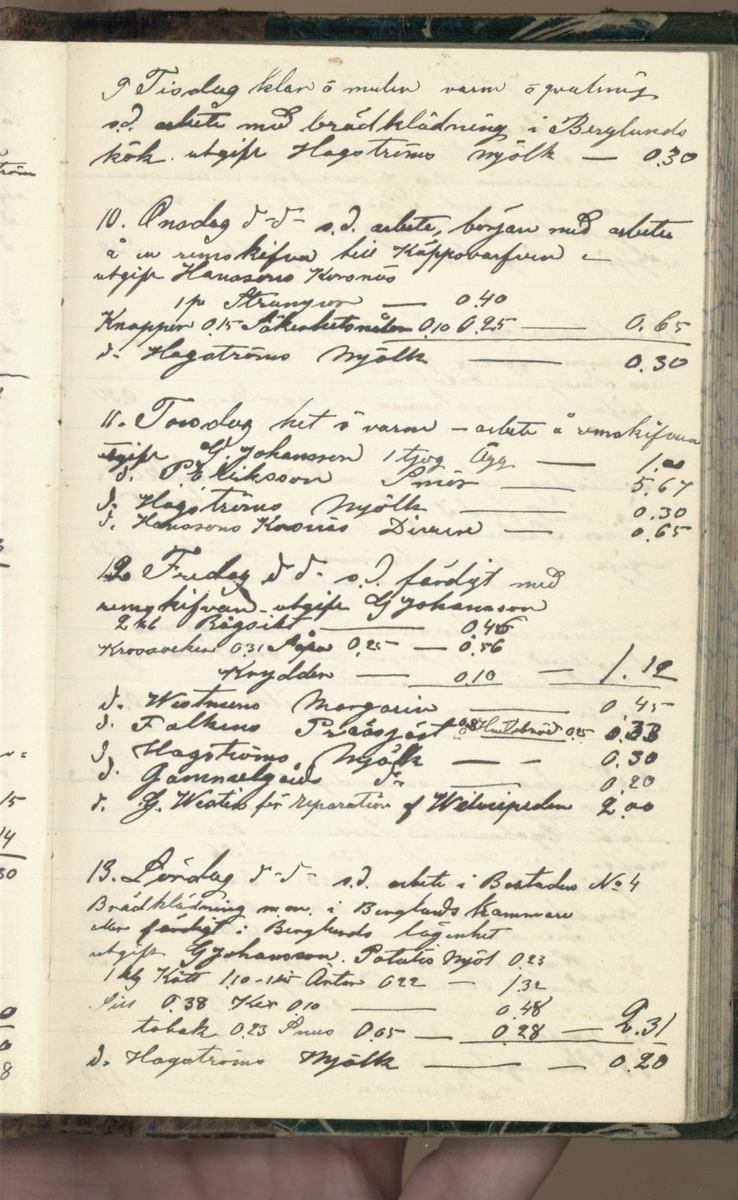 9 Tisdag klar o mulen varm o qvalmig
s.d. arbete med brädklädning i Berglunds
kök. utgift Hagströms Mjölk — 0.30
10. Onsdag d-d- s.d. arbete, började med arbete
å en remskifva till Käppovarfven
utgift Hanssons Koronäs
1 pr Strumpor — 0.40
Knappar 0.15 Säkerhetsnålar 0.10 0.25 — 0.65
d. Hagströms Mjölk — 0.30
11. Torsdag het o varm — arbete å remskifvan
utgift G. Johansson 1 tjog Ägg — 1.00
d. P. Eriksson Smör — 5.67
d. Hagströms Mjölk — 0.30
d. Hanssons Koronäs Diverse — 0.65
12 Fredag d d- s.d. färdigt med
remskifvan - utgift G Johansson
2 kg Rågsikt — 0.46
0.31 Såpa 0.25 — 0.56
Krydder — 0.10 — 1.12
d. Westmans Margarin — 0.45
d. Falkens Pressjäst 0.8 0.25 0.33
d. Hagströms Mjölk — 0.30
d. Gammelgårds do 0.20
d. G. Westin för reparation af Velocipeden 2.00
13. Lördag d-d- s.d. arbete i Bostaden No 4
Brädklädning m.m. i Berglunds Kammare
färdigt i Berglunds lägenhet
utgift G Johansson. Potatis Mjöl 0.23
1 kg Kött 1.10 - Ärter 0.22 — 1.32
Sill 0.38 Kex 0.10 — 0.48
tobak 0.23 Snus 0.05 — 0.28 — 2.31
d. Hagströms Mjölk — 0.20